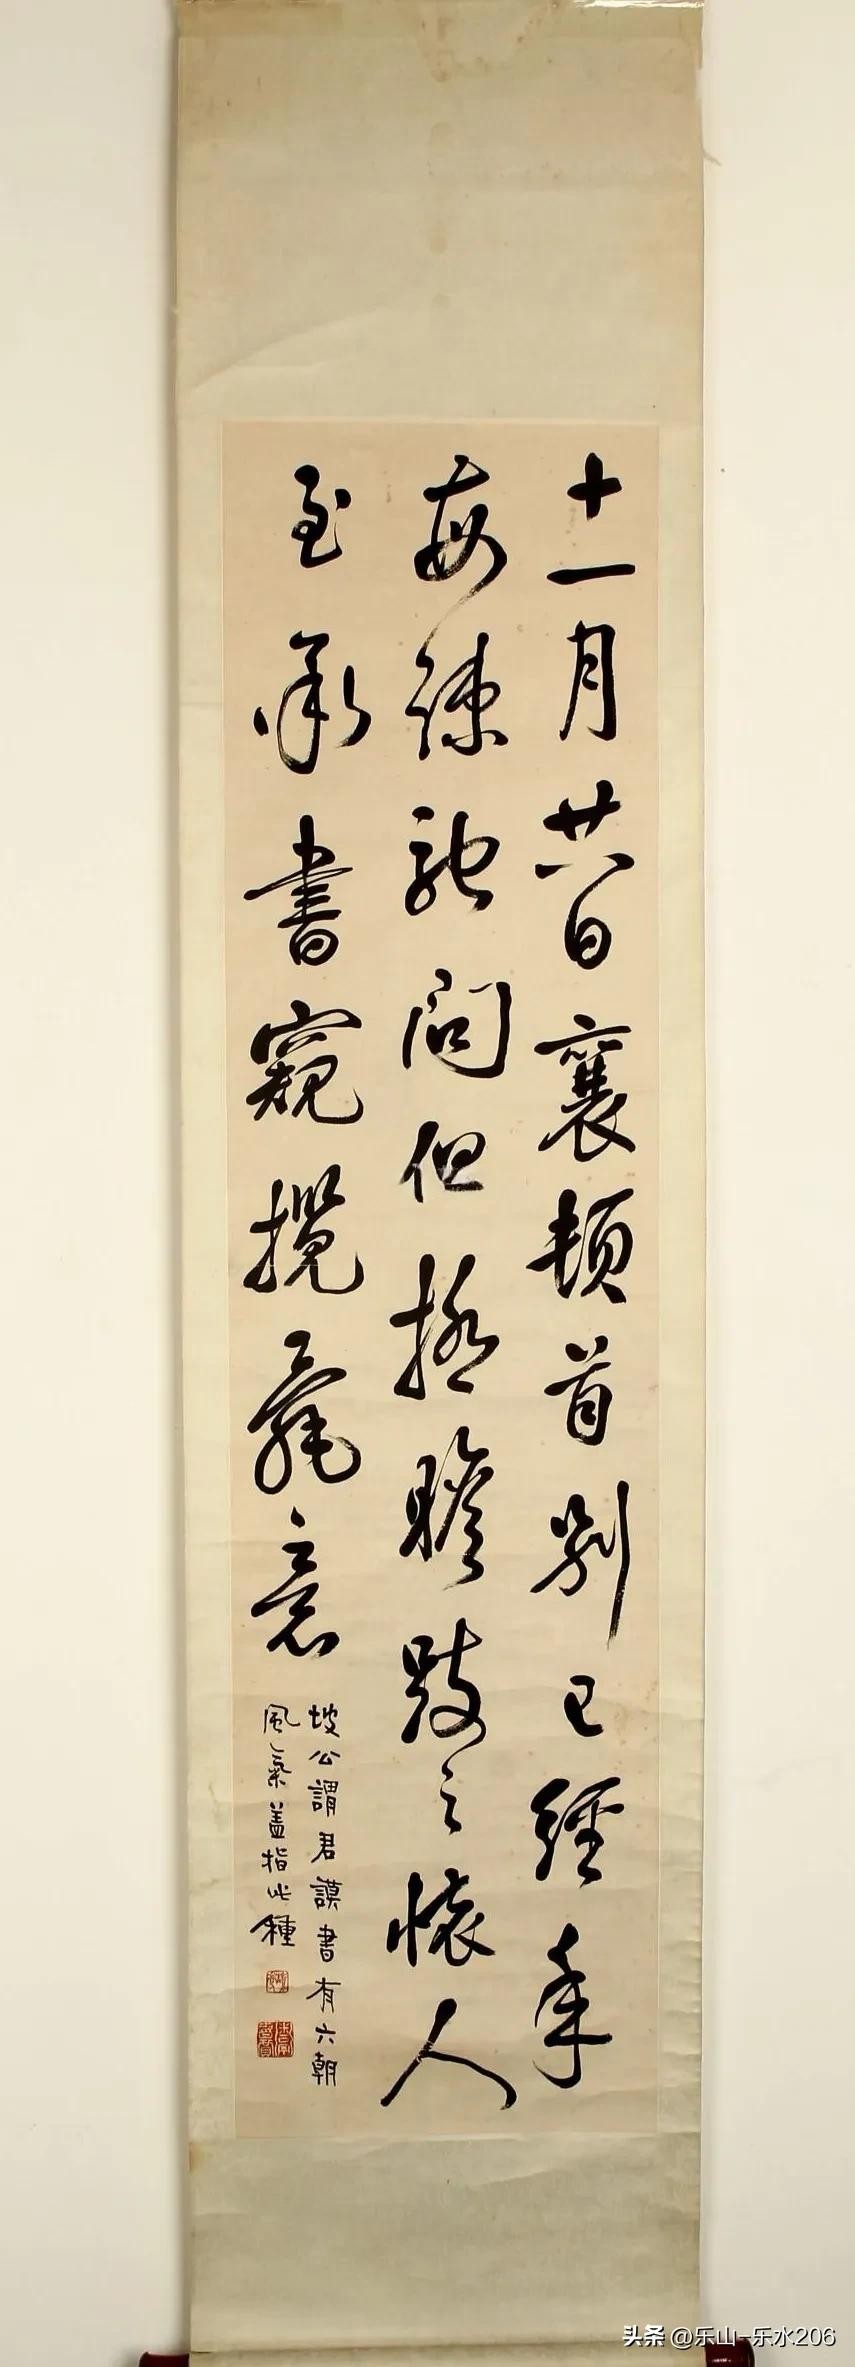 十一月廿八日襄頓首別已經年
每疎馳問但極瞻跂之懷人
至承書窺攬毫意
坡公謂君謨書有六朝
風氣蓋指此種
头条 @乐山-乐水206